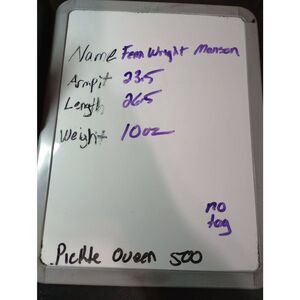 Name Fern Wright Manson
Armpit 23.5
Length 26.5
Weight 10oz
no
tag
Pickle Queen 500